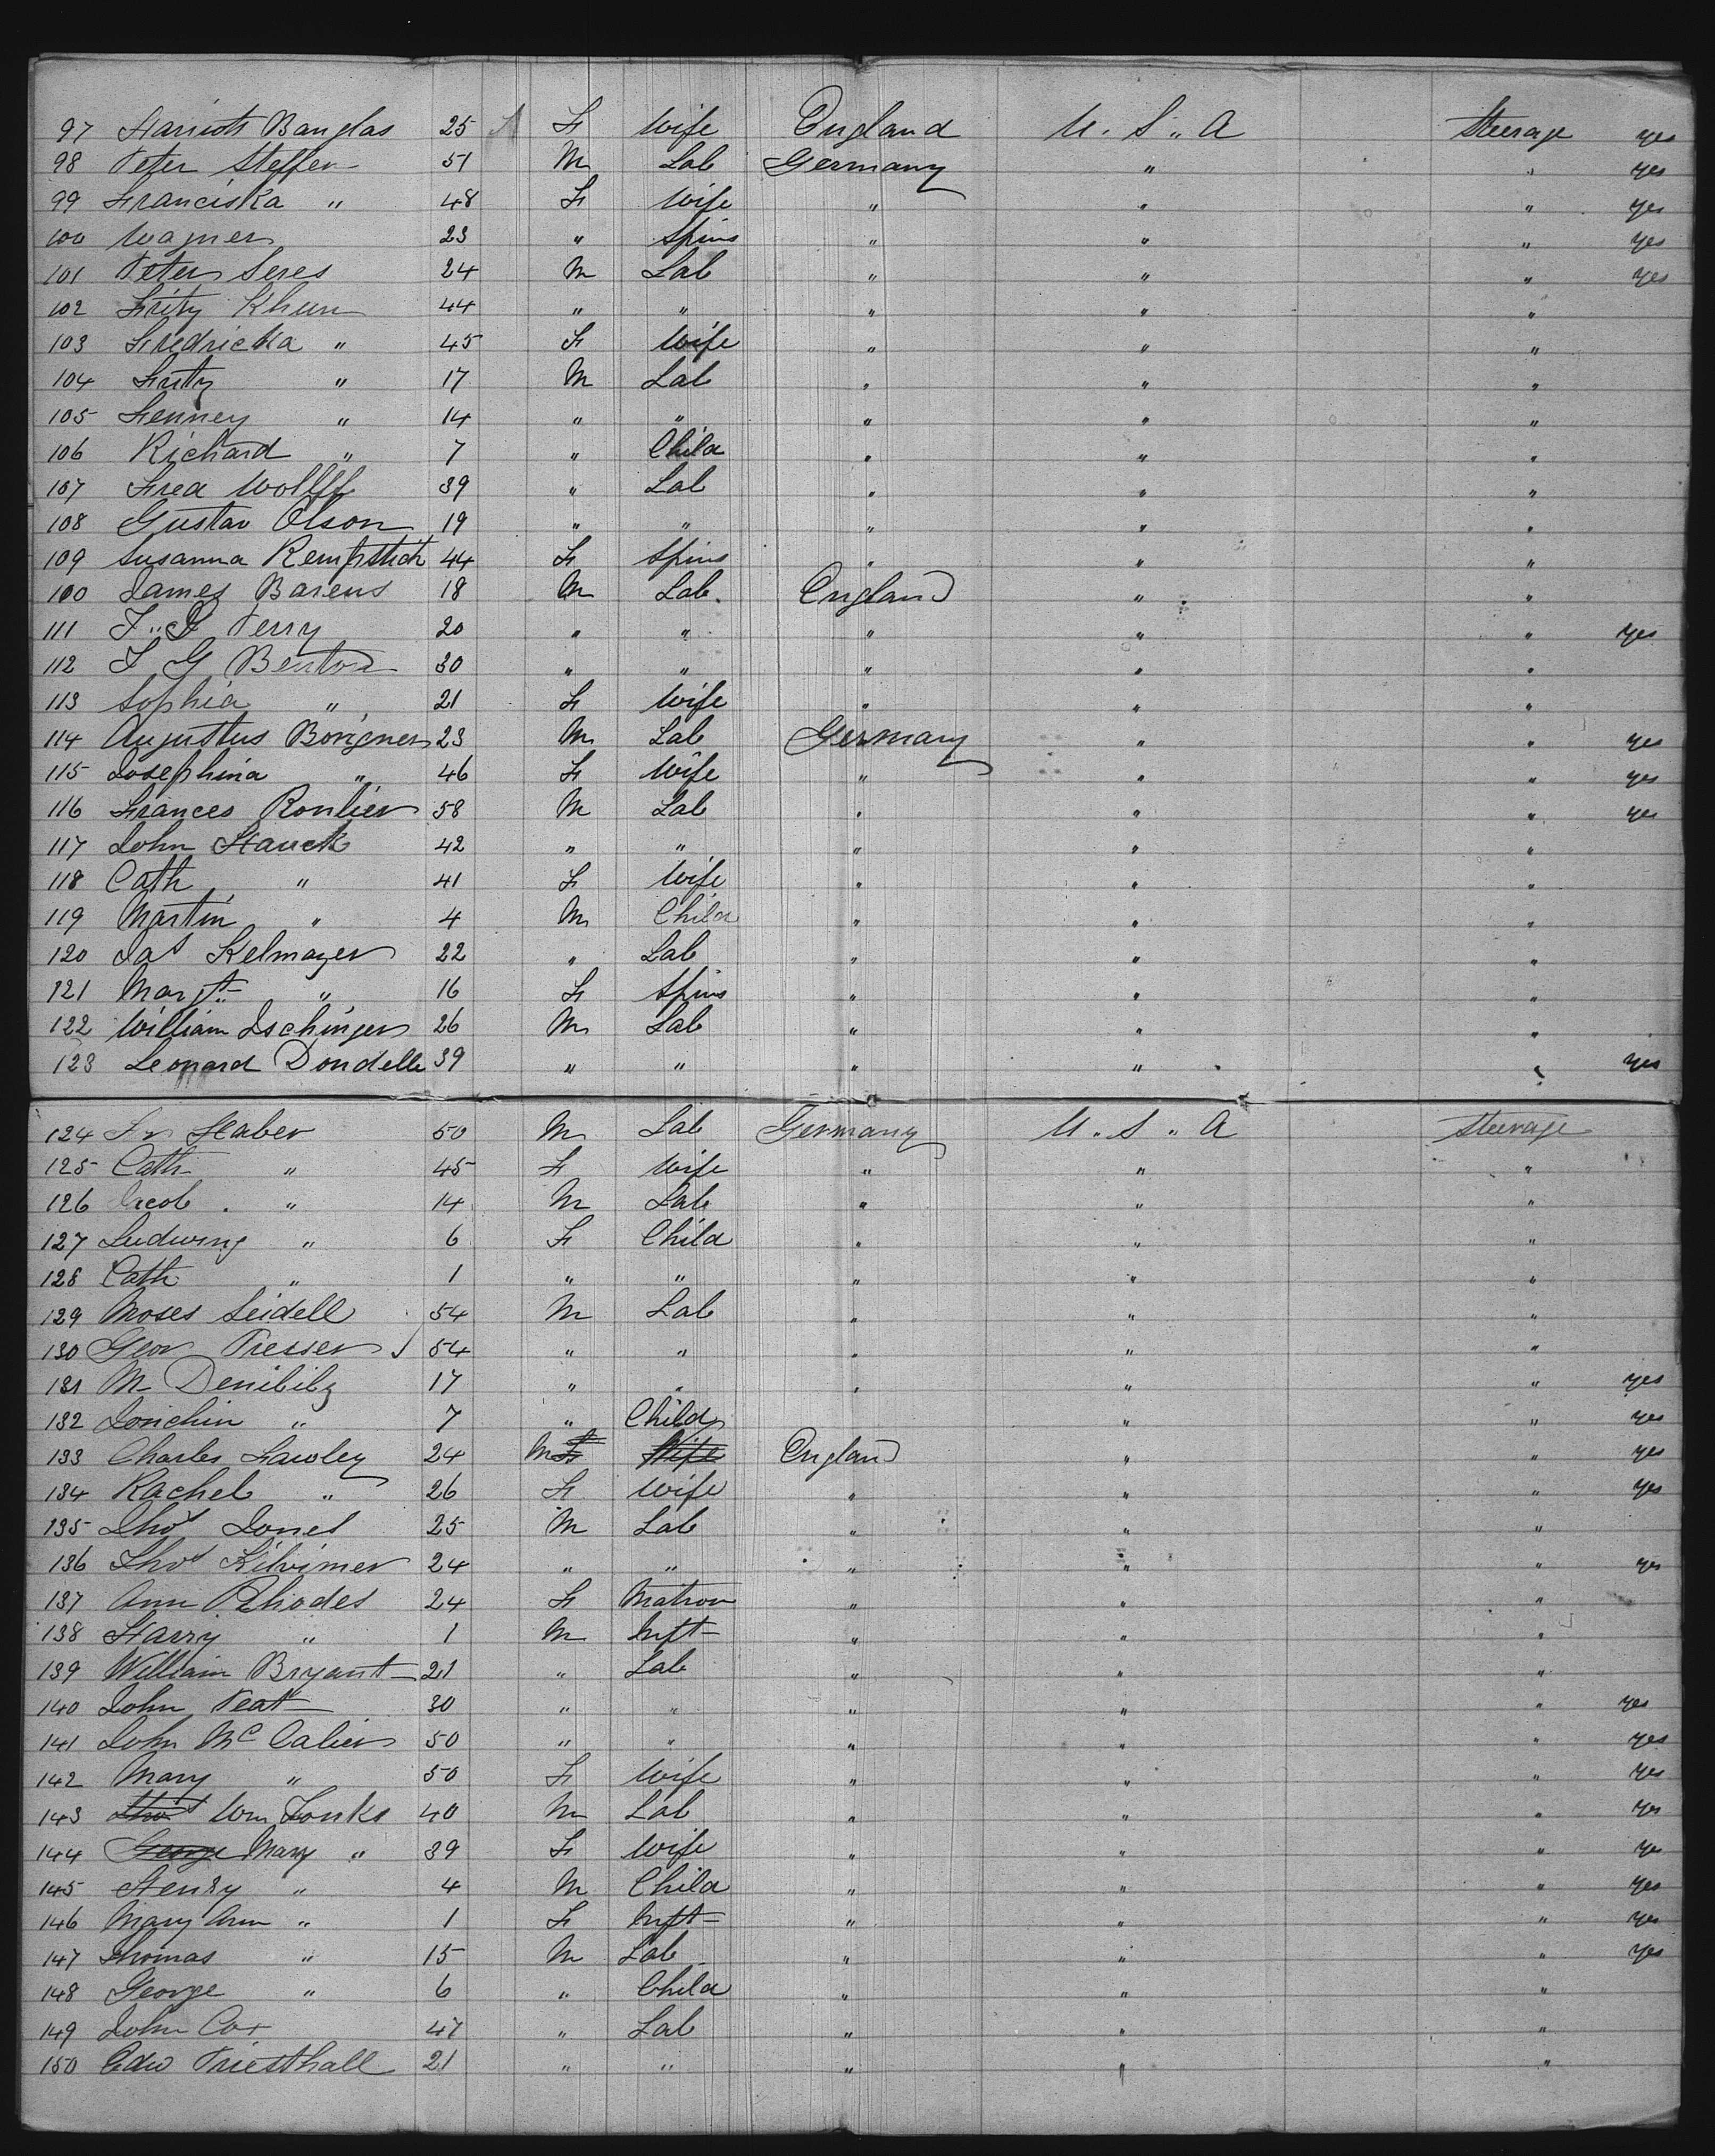 97 Harriott Banglas 25 F Wife England U. S. A Steerage yes
98 Peter Steffen 51 M Lab Germany " " yes
99 Franciska " 48 F Wife " " " yes
100 Wagner 23 " Spins " " " yes
101 Peter Seres 24 M Lab " " " yes
102 Fritz Khun 44 " " " " "
103 Fredricka " 45 F Wife " " "
104 Fritz " 17 M Lab " " "
105 Henney " 14 " " " " "
106 Richard " 7 " Child " " "
107 Fred Wolfff 39 " Lab " " "
108 Gustav Olson 19 " " " " "
109 Susanna 44 F Spins " " "
100 James Barens 18 M Lab. England " "
111 J. Perry 20 " " " " " yes
112 G Benton 30 " " " " "
113 Sophia " 21 F Wife " " "
114 Augustus Borigner 23 M Lab Germany " " yes
115 Josephina " 46 F Wife " " " yes
116 Frances Ronlier 58 M Lab " " " yes
117 John Hauck 42 " " " " "
118 Cath " 41 F Wife " " "
119 Martin " 4 M Child " " "
120 Jas Kelmayer 22 " Lab " " "
121 Margt " 16 F Spins " " "
122 William Ischinger 26 M Lab " " "
123 Leonard Dondelle 39 " " " " " yes
124 Fr Haber 50 M Lab Germany U. S. A Steerage
125 Cath " 45 F Wife " " "
126 Jacob " 14 M Lab " " "
127 Ludwing " 6 F Child " " "
128 Cath " 1 " " " " "
129 Moses Seidell 54 M Lab " " "
130 Geor Presser 54 " " " " "
131 M 17 " " " " " yes
132 Jonchin " 7 " Child " " yes
133 Charles Fawley 24 M F Wife England " " yes
134 Rachel " 26 F Wife " " " yes
135 Thos Jones 25 M Lab " " "
136 Thos 24 " " " " " yes
137 Ann Rhodes 24 F Matron " " "
138 Harry " 1 M Inft " " "
139 William Bryant 21 " Lab " " "
140 John Peat 30 " " " " " yes
141 John McCalier 50 " " " " " yes
142 Mary " 50 F Wife " " " yes
143 Thos Wm Tonks 40 M Lab " " " yes
144 George Mary " 39 F Wife " " " yes
145 Henry " 4 M Child " " " yes
146 Mary Ann " 1 F Inft " " " yes
147 Thomas " 15 M Lab " " " yes
148 George " 6 " Child " " "
149 John Cox 47 " Lab " " "
150 Edw Priesthall 21 " " " " "